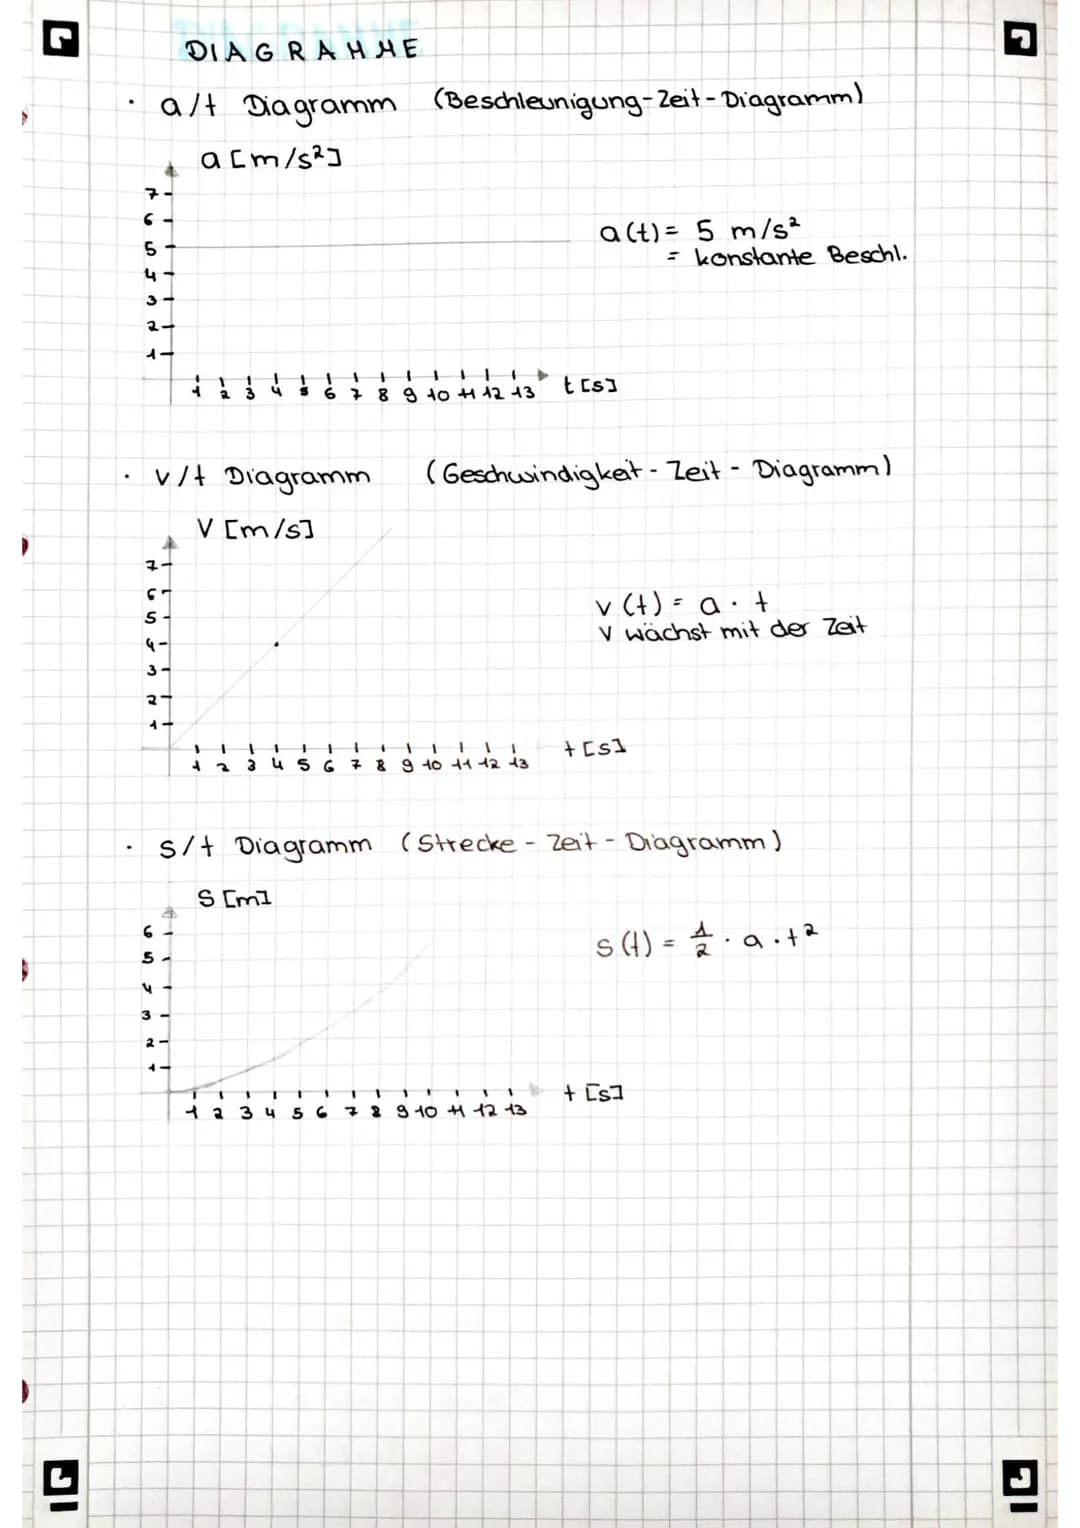 DIAGRAMME
· a/t Diagramm (Beschleunigung-Zeit-Diagramm)
a [m/s²]
7
6
5
4
3
2
1
a(t) = 5 m/s²
= konstante Beschl.
1 2 3 4 5 6 7 8 9 10 11 12 13 t [s]
· v/t Diagramm (Geschwindigkeit - Zeit - Diagramm)
V [m/s]
7
6
5
4
3
2
1
v (t) = a · t
V wächst mit der Zeit
1 2 3 4 5 6 7 8 9 10 11 12 13 t [s]
· s/t Diagramm (Strecke - Zeit - Diagramm)
S [m]
6
5
4
3
2
1
s (t) = 1/2 · a · t²
1 2 3 4 5 6 7 8 9 10 11 12 13 t [s]